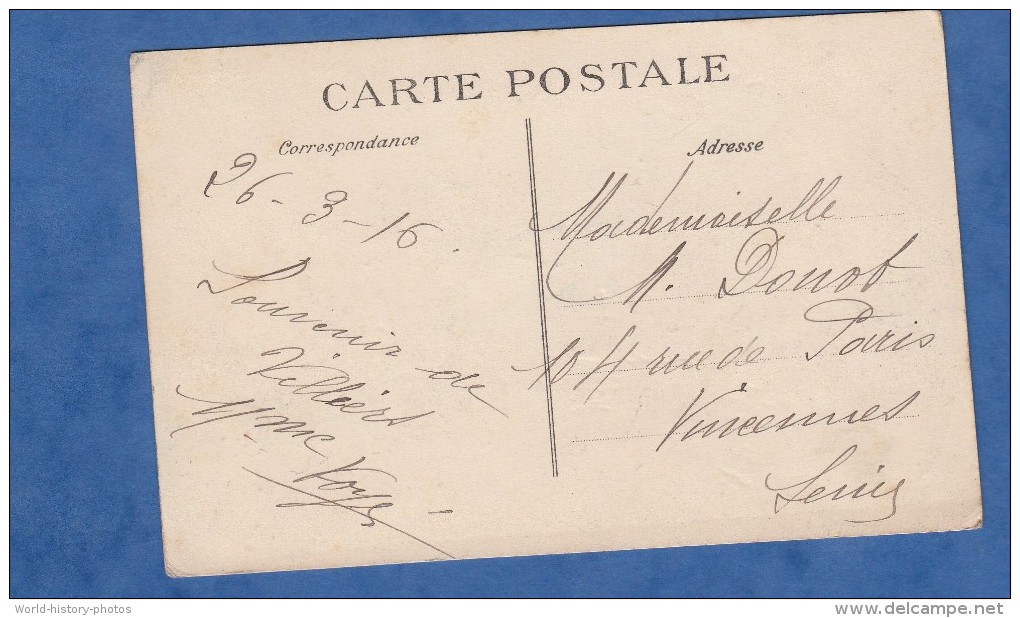 CARTE POSTALE
Correspondance
26-3-16.
Souvenir de
Villiers
Mme
Adresse
Mademoiselle
M.
104 rue de Paris
Vincennes
World-history-photos
www.delcampe.net